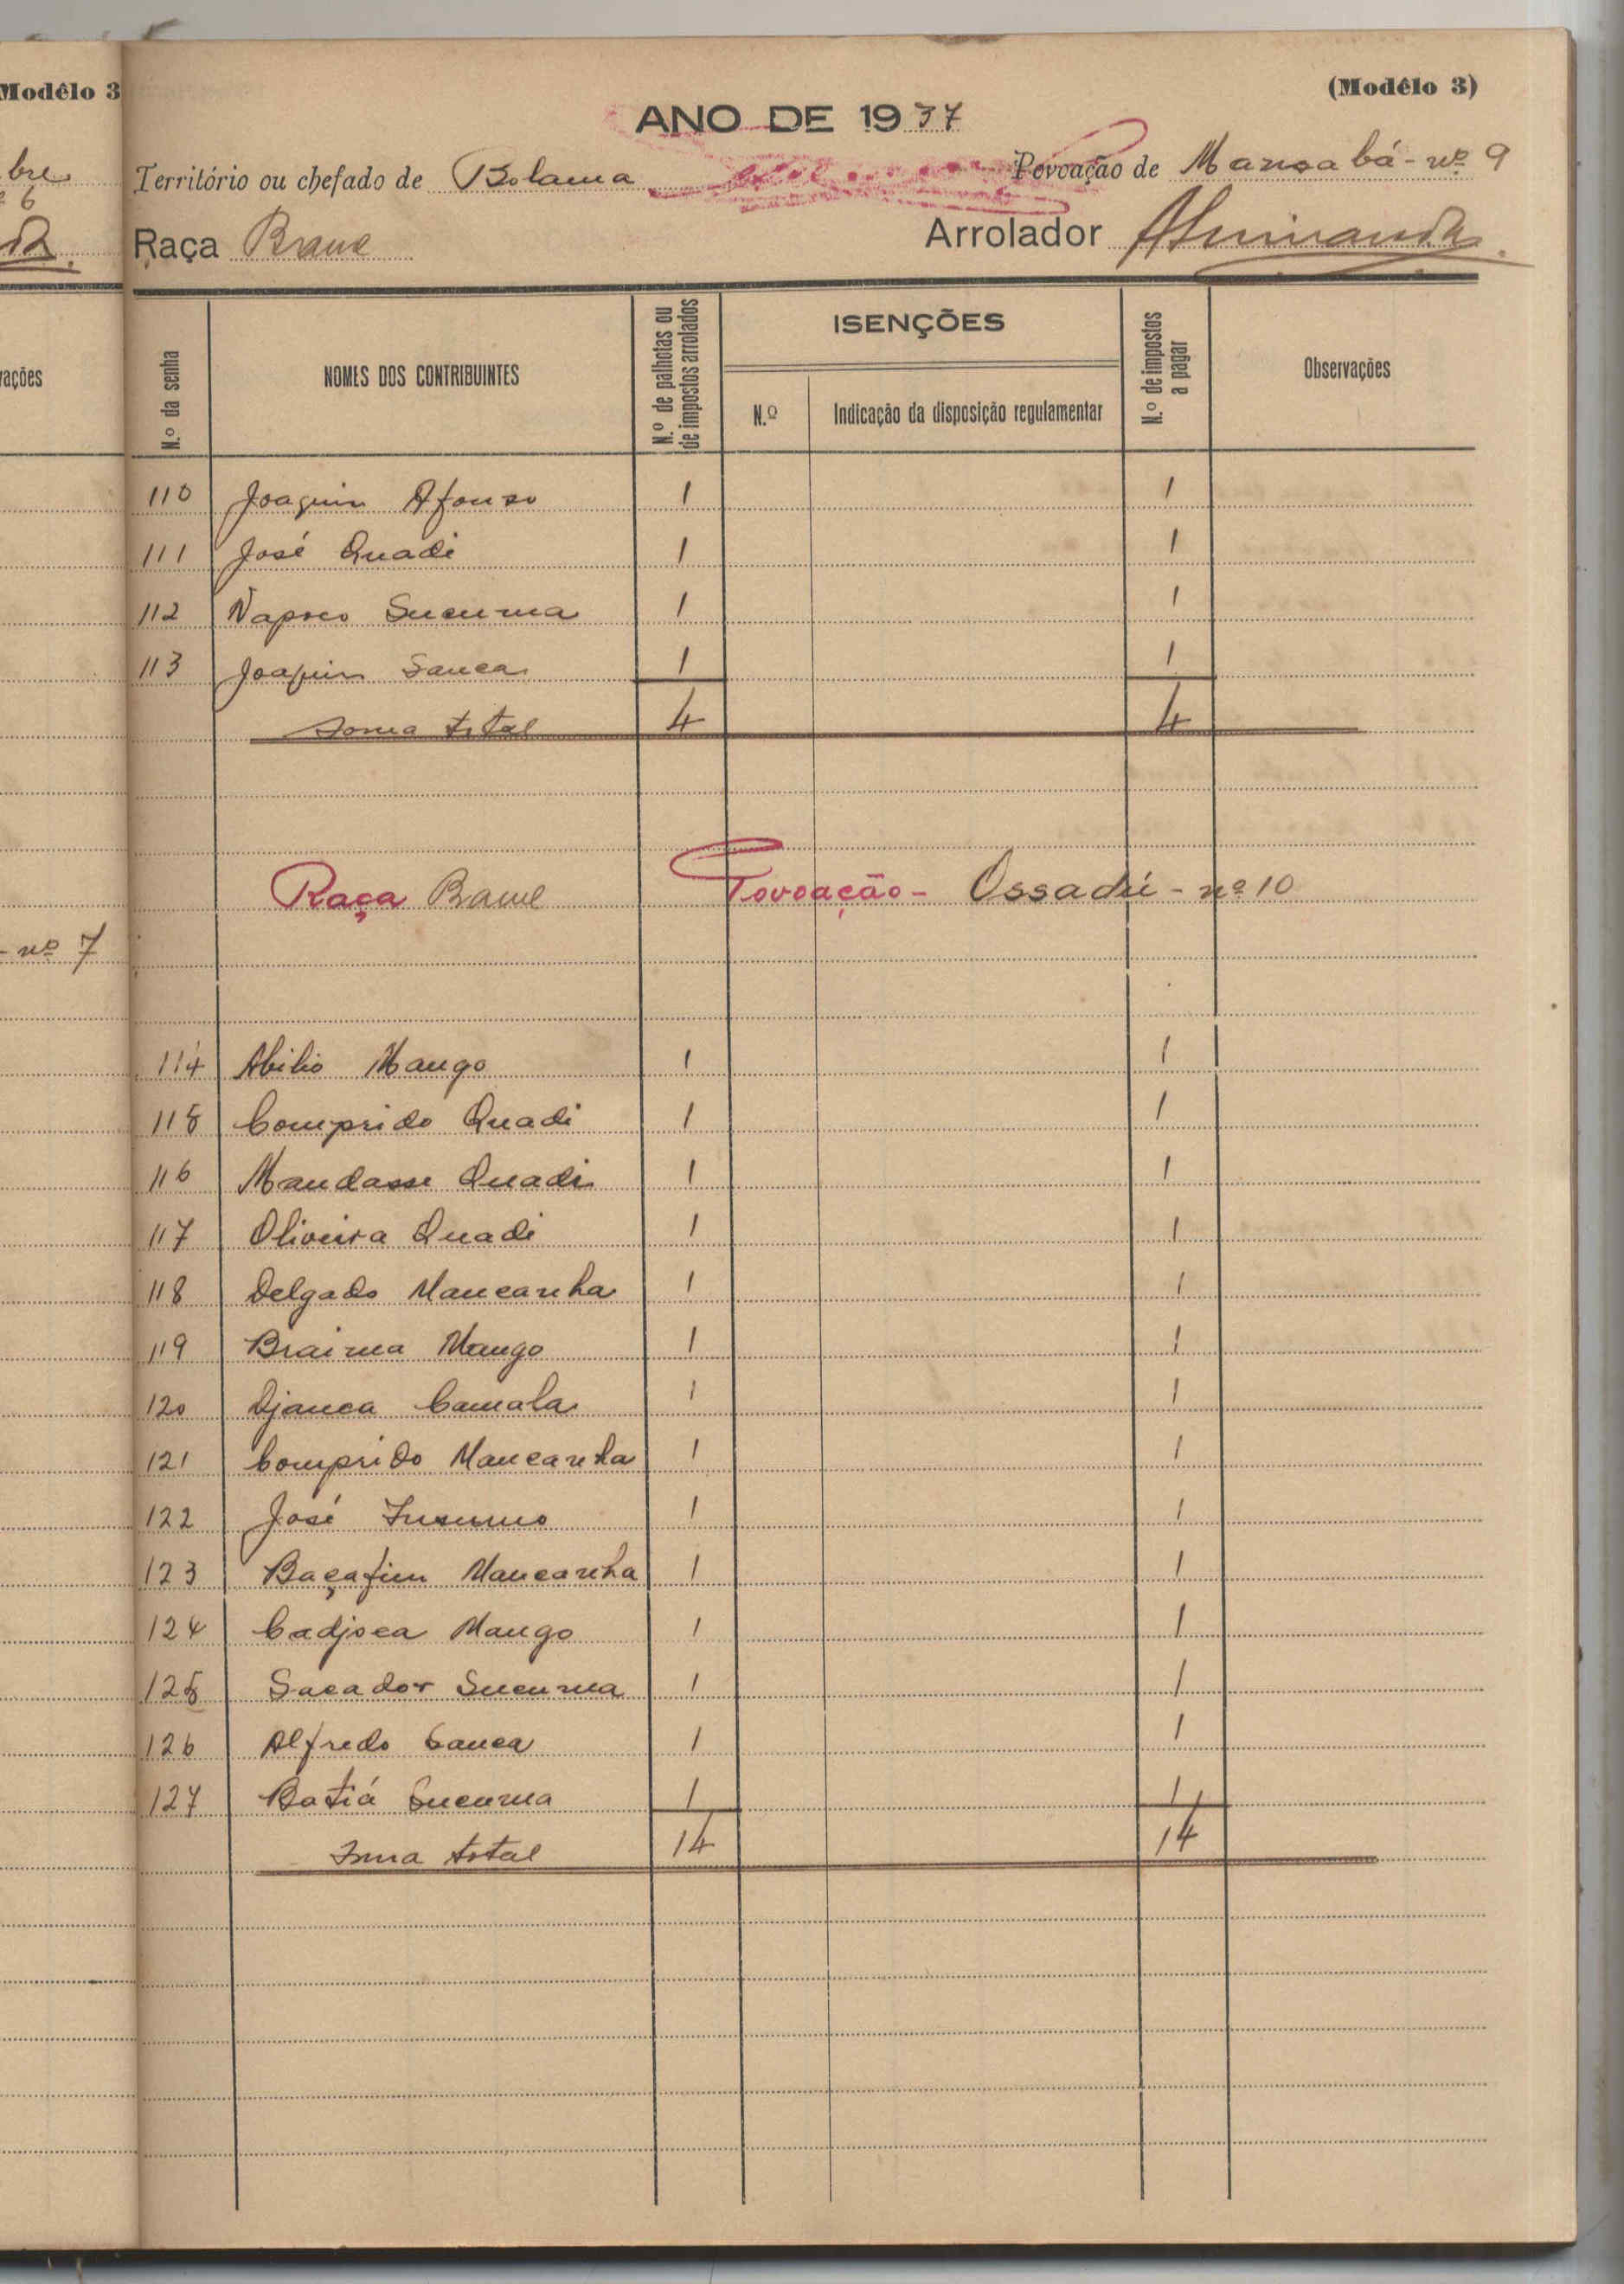 Modêlo 3
bre
6
rações
nº 7
(Modêlo 3)
ANO DE 1937
Território ou chefado de Bolama Povoação de Mansabá - nº 9
Raça Brame Arrolador
N.º da senha NOMES DOS CONTRIBUINTES N.º de palhotas ou de impostos arrolados ISENÇÕES N.º de impostos a pagar Observações
N.º Indicação da disposição regulamentar
110 Joaquim Afonso 1 1
111 José Quadi 1 1
112 Sucuma 1 1
113 Joaquim Sanca 1 1
Soma total 4 4
Raça Brame Povoação - Ossadú - nº 10
114 Abilio Mango 1 1
115 Comprido Quadi 1 1
116 Mandasse Quadi 1 1
117 Oliveira Quadi 1 1
118 Delgado Mancanha 1 1
119 Braima Mango 1 1
120 Djanca Camala 1 1
121 Comprido Mancanha 1 1
122 José 1 1
123 Baçafim Mancanha 1 1
124 Cadjoca Mango 1 1
125 Sacador Sucuma 1 1
126 Alfredo Sanca 1 1
127 Batiá Sucuma 1 1
Soma total 14 14